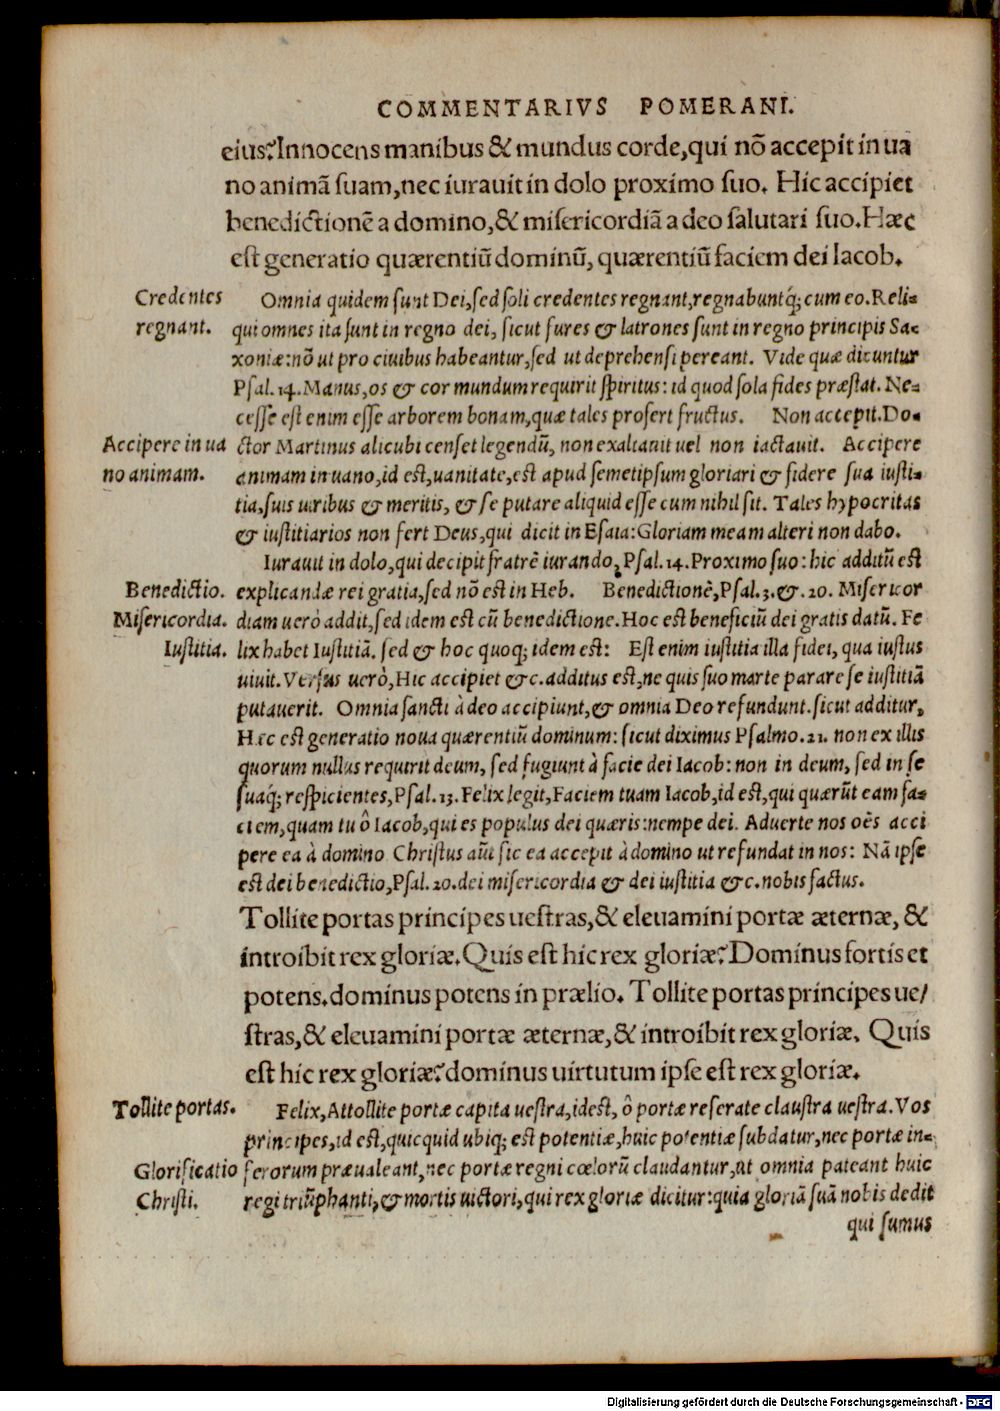 COMMENTARIVS POMERANI.
eius? Innocens manibus & mundus corde, qui nõ accepit in ua
no animã suam, nec iurauit in dolo proximo suo. Hic accipiet
benedictionẽ a domino, & misericordiã a deo salutari suo. Hæc
est generatio quærentiũ dominũ, quærentiũ faciem dei Iacob.
Credentes
regnant.
Omnia quidem sunt Dei, sed soli credentes regnant, regnabuntq; cum eo. Reli-
qui omnes ita sunt in regno dei, sicut fures & latrones sunt in regno principis Sa-
xoniæ: nõ ut pro ciuibus habeantur, sed ut deprehensi pereant. Vide quæ dicuntur
Psal. 14. Manus, os & cor mundum requirit spiritus: id quod sola fides præstat. Ne-
cesse est enim esse arborem bonam, quæ tales profert fructus. Non accepit. Do-
Accipere in ua
no animam.
ctor Martinus alicubi censet legendũ, non exaltauit uel non iactauit. Accipere
animam in uano, id est, uanitate, est apud semetipsum gloriari & fidere sua iusti-
tia, suis uiribus & meritis, & se putare aliquid esse cum nihil sit. Tales hypocritas
& iustitiarios non fert Deus, qui dicit in Esaia: Gloriam meam alteri non dabo.
Iurauit in dolo, qui decipit fratrẽ iurando, Psal. 14. Proximo suo: hic additũ est
Benedictio.
explicandæ rei gratia, sed nõ est in Heb. Benedictionẽ, Psal. 3. & . 20. Misericor
Misericordia.
diam uerò addit, sed idem est cũ benedictione. Hoc est beneficiũ dei gratis datũ. Fe
Iustitia.
lix habet Iustitiã. sed & hoc quoq; idem est: Est enim iustitia illa fidei, qua iustus
uiuit. Versus uerò, Hic accipiet &c. additus est, ne quis suo marte parare se iustitiã
putauerit. Omnia sancti à deo accipiunt, & omnia Deo refundunt. sicut additur,
Hæc est generatio noua quærentiũ dominum: sicut diximus Psalmo. 21. non ex illis
quorum nullus requirit deum, sed fugiunt à facie dei Iacob: non in deum, sed in se
suaq; respicientes, Psal. 13. Felix legit, Faciem tuam Iacob, id est, qui quærũt eam fa-
ciem, quam tu ô Iacob, qui es populus dei quæris: nempe dei. Aduerte nos oẽs acci
pere ea à domino Christus aũt sic ea accepit à domino ut refundat in nos: Nã ipse
est dei benedictio, Psal. 20. dei misericordia & dei iustitia &c. nobis factus.
Tollite portas principes uestras, & eleuamini portæ æternæ, &
introibit rex gloriæ. Quis est hic rex gloriæ? Dominus fortis et
potens. dominus potens in prælio. Tollite portas principes ue/
stras, & eleuamini portæ æternæ, & introibit rex gloriæ. Quis
est hic rex gloriæ? dominus uirtutum ipse est rex gloriæ.
Tollite portas.
Felix, Attollite portæ capita uestra, idest, ô portæ reserate claustra uestra. Vos
principes, id est, quicquid ubiq; est potentiæ, huic potentiæ subdatur, nec portæ in-
Glorificatio
Christi.
ferorum præualeant, nec portæ regni cœlorũ claudantur, ut omnia pateant huic
regi triũphanti, & mortis uictori, qui rex gloriæ dicitur: quia gloriã suã nobis dedit
qui sumus
Digitalisierung gefördert durch die Deutsche Forschungsgemeinschaft - DFG